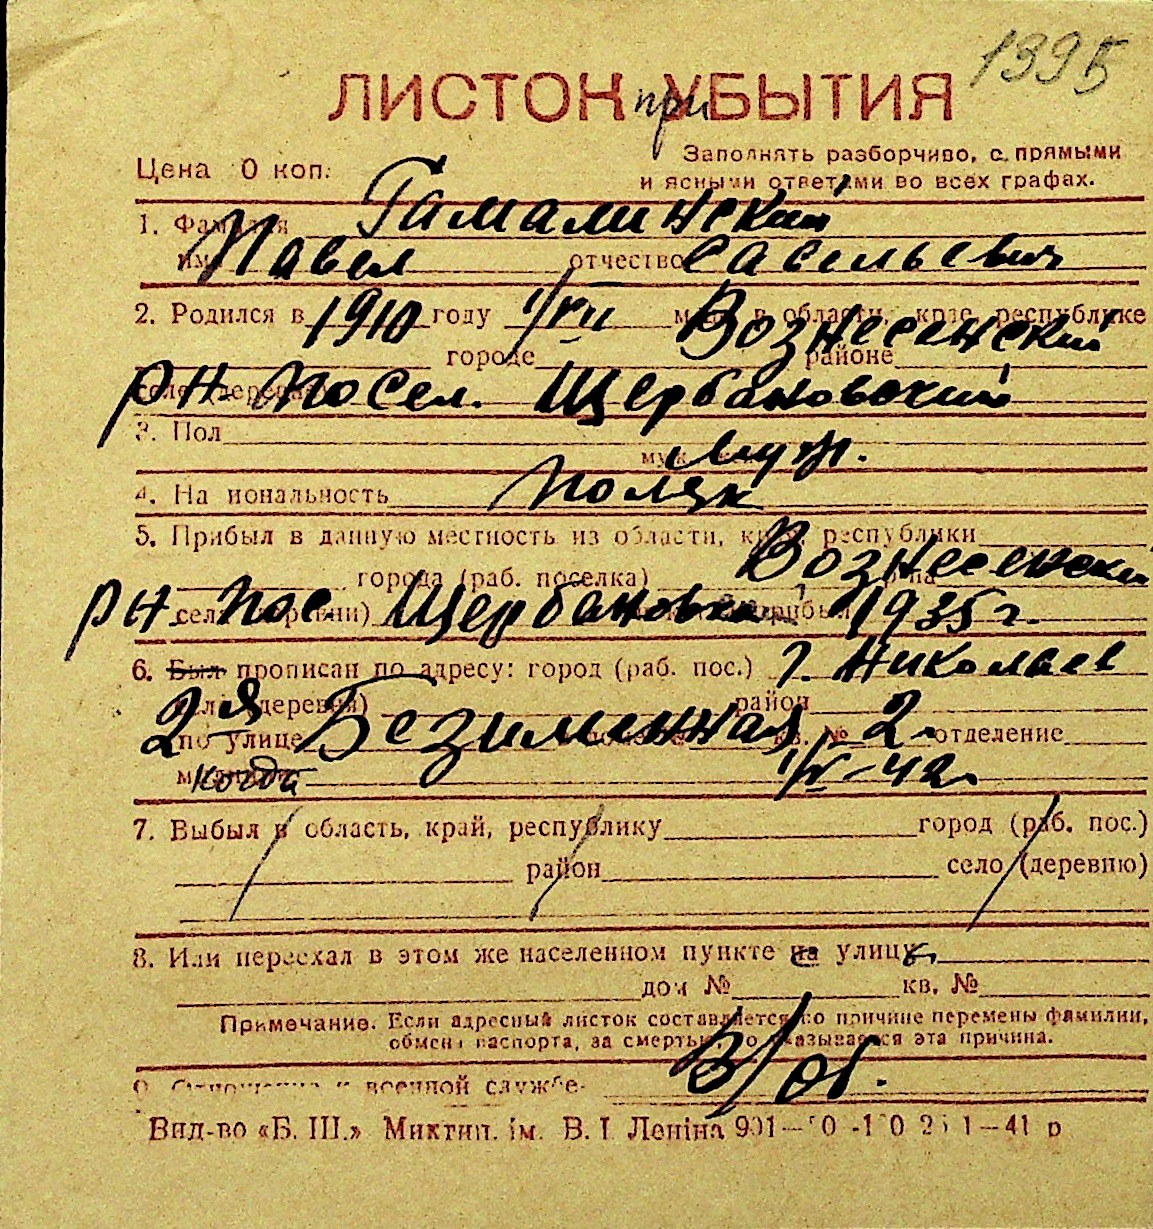 1395
ЛИСТОК при УБЫТИЯ
Цена 0 коп.
Заполнять разборчиво, с прямыми
и ясными ответами во всех графах.
1. Фамилия Гамалинский
имя Павел отчество Савельевич
2. Родился в 1910 году 1/VII м-це в области, крае, республике Вознесенский
городе районе
рн. посел. Щербановский
3. Пол муж.
4. Национальность поляк
5. Прибыл в данную местность из области, края, республики
города (раб. поселка) Вознесенский
рн. пос. Щербановка 1935 г.
6. Был прописан по адресу: город (раб. пос.) г. Николаев
села (деревня) район
по улице 2-я Безименная кв. № 2 отделение
когда 1/V-42
7. Выбыл в область, край, республику город (раб. пос.)
район село (деревню)
8. Или переехал в этом же населенном пункте на улицу
дом № кв. №
Примечание. Если адресный листок составляется по причине перемены фамилии,
обмена паспорта, за смертью, то указывается эта причина.
9. Отношение к военной службе в/об.
Вид-во «Б. Ш.» Миктип. ім. В. І. Леніна